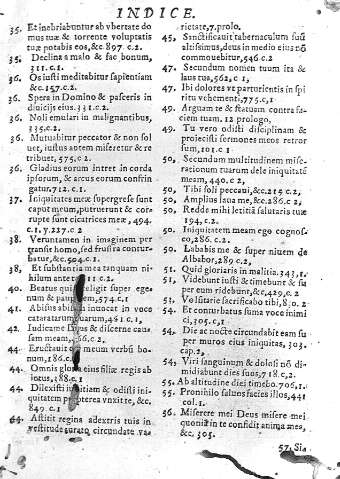 INDICE.
35. Et inebriabuntur ab vbertate do
mus tuæ & torrente voluptatis
tuæ potabis eos, &c. 897. c.2.
35. Declina a malo & fac bonum,
311. c.1.
36. Os iusti meditabitur sapientiam
&c. 157. c.2.
36. Spera in Domino & pasceris in
diuicijs eius. 331. c.2.
36. Noli emulari in malignantibus,
335. c.2.
36. Mutuabitur peccator & non sol
uet, iustus autem miseretur & re
tribuet, 575. c.2.
36. Gladius eorum intret in corda
ipsorum, & arcus eorum confrin
gatur, 712. c.1.
37. Iniquitates meæ supergresse sunt
caput meum, putruerunt & corru-
pte sunt cicatrices meæ, 494.
c.1, y. 227. c.2
38. Veruntamen in imaginem per
transit homo, sed frustra contur-
batur, &c. 504. c.1.
38, Et substantia mea tanquam ni-
hilum ante te c.2.
40. Beatus qui intelligit super ege-
num & pauperem, 574. c.1
41. Abisus abissum inuocat in voce
cataratarum tuarum, 461 c.1,
42. Iudica me Deus & discerne cau-
sam meam, c.2.
44. Eructauit cor meum verbū bo-
num, 186. c.
44. Omnis gloria eius filiæ regis ab
intus, 188. c.1
44. Dilexisti iustitiam & odisti ini-
quitatem propterea vnxit te, &c.
849 c.1
44. Astitit regina adextris tuis in
vestitu deaurato circundate va-
rietate, 7. prolo.
45, Sanctificauit tabernaculum suū
altissimus, deus in medio eius nō
commouebitur, 546. c.2
47. Secundum nomen tuum ita &
laus tua, 562, c 1,
47. Ibi dolores vt parturientis in spi
ritu vehementi, 775, c,1
49. Arguam te & statuam contra fa-
ciem tuam. 12 prologo,
49. Tu vero odisti disciplinam &
proiecisti sermones meos retror
sum, 101. c 1
50, Secundum multitudinem mise-
rationum tuarum dele iniquitatē
meam, 440. c 2,
50, Tibi soli peccaui, &c. 215 c.2,
50, Amplius laua me, &c. 286 c.2,
50, Redde mihi letitiā salutaris tuæ
194, c.2.
50. Iniquitatem meam ego cognos-
co, 286. c.2.
50. Lababis me & super niuem de
Albabor, 289 c.2,
51. Quid gloriaris in malitia. 343, 1.
51, Videbunt iusti & timebunt & su
per eum ridebunt, &c, 429. c 2
53, Volūtarie sacrificabo tibi, 8, 0. 2
54. Et conturbatus suma voce inimi
ci, 305. c,1
54. Die ac nocte circundabit eam su
per muros eius iniquitas, 303.
cap. 2,
54, Viri sanguinum & dolosi nō di-
midiabunt dies suos, 718. c, 2.
55. Ab altitudine diei timebo. 705, 1.
55. Pro nihilo saluos facies illos, 441
col. 1.
56. Miserere mei Deus miserere mei
quoniā in te confidit anima mea,
&c, 305.
57. Sia